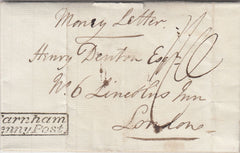 Money Letter
Henry Denton Esqr
No. 6 Lincolns Inn
London
arnham
nny Post